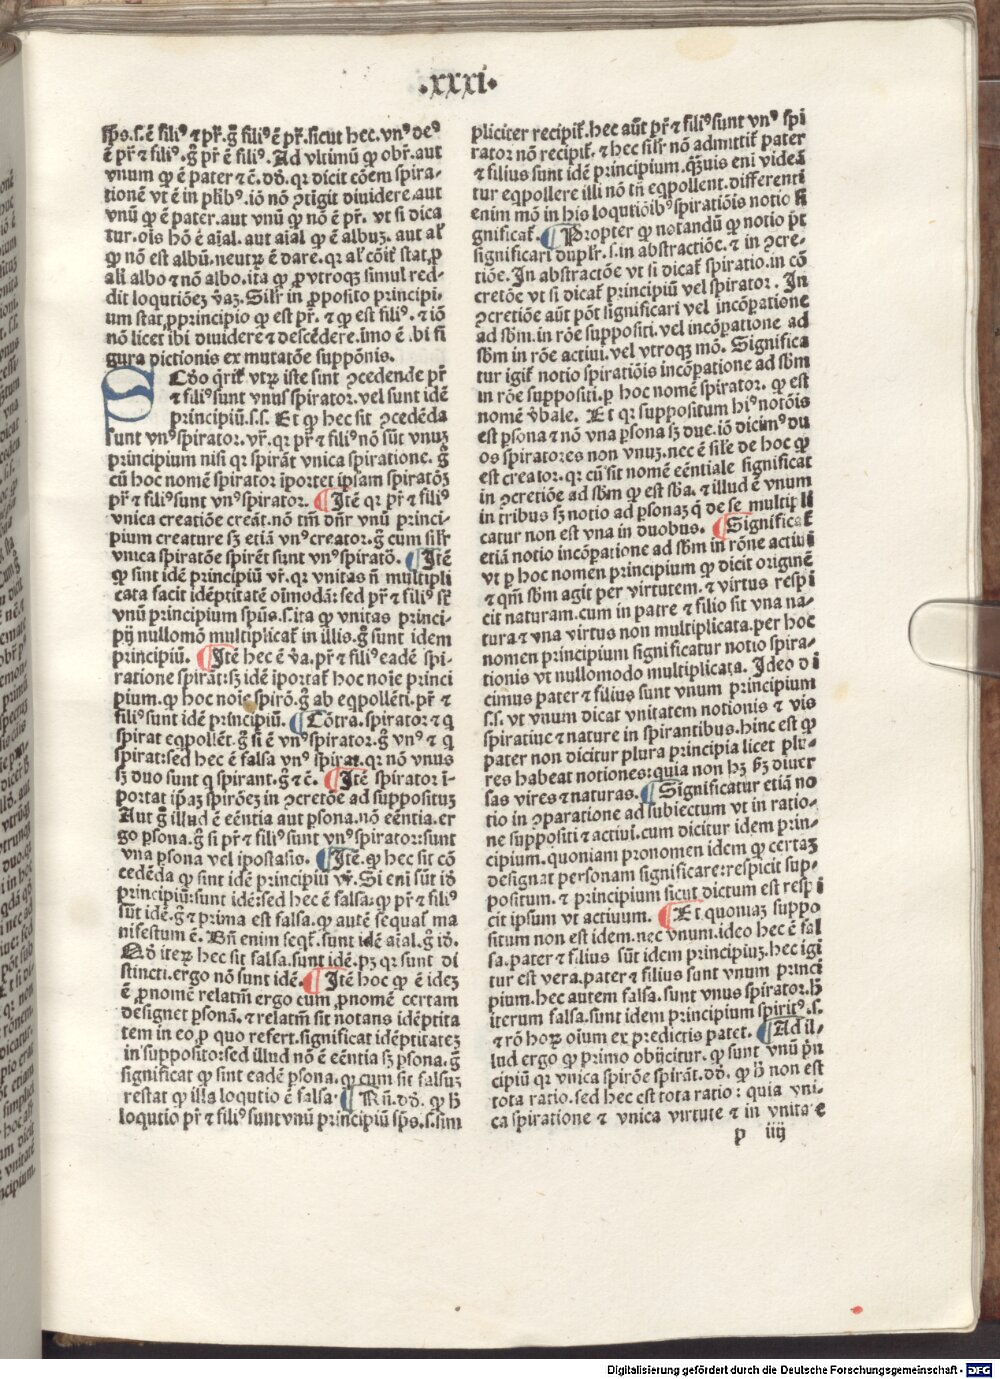 .xxxi.
sp̄s.s.ē filiꝰ ⁊ pr̄.g̊ filiꝰ ē pr̄.sicut hec.vnꝰ deꝰ
ē pr̄ ⁊ filiꝰ.g̊ pr̄ ē filiꝰ. Ad vltimū ꝙ obr̄.aut
vnum ꝙ ē pater ⁊ c̄.dō.qr dicit cōem spira-
tionē vt ē in pr̄ibꝰ.iō nō ꝯtigit diuidere.aut
vnū ꝙ ē pater.aut vnū ꝙ nō ē pr̄. vt si dica
tur.oīs hō ē aīal. aut aīal ꝙ ē albuꝫ. aut al̄
ꝙ nō est albū.neutꝝ ē dare.qr al̄ cōit̄ stat ꝓ
ali albo ⁊ nō albo.ita ꝙ ꝓ vtroqꝫ simul red-
dit loqutiōeꝫ v̄aꝫ. Sil̄r in ꝓposito principi-
um stat ꝓ principio ꝙ est pr̄. ⁊ ꝙ est filiꝰ. ⁊ iō
nō licet ibi diuidere ⁊ descēdere.imo ē .bi fi
gura dictionis ex mutatōe suppōnis.
SCdo q̄rit̄ vtꝝ iste sunt ꝯcedende pr̄
⁊ filiꝰ sunt vnus spirator. vel sunt idē
principiū.s.s. Et ꝙ hec sit ꝯcedēda
sunt vnꝰ spirator. vr̄. qr pr̄ ⁊ filiꝰ nō sūt vnuꝫ
principium nisi qr spirāt vnica spiratione. g̊
cū hoc nomē spirator īportet ipsam spiratōꝫ
pr̄ ⁊ filiꝰ sunt vnꝰ spirator. ¶ Itē qr pr̄ ⁊ filiꝰ
vnica creatiōe creāt.nō tm̄ dn̄r vnū princi-
pium creature sꝫ etiā vnꝰ creator.g̊ cum sil̄r
vnica spiratōe spirēt sunt vnꝰ spiratō. ¶ Itē
ꝙ sint idē principiū vr̄. qr vnitas n̄ multipli
cata facit idēptitatē oīmodā: sed pr̄ ⁊ filiꝰ sūt
vnū principium spūs.s.ita ꝙ vnitas princi-
pij nullomō multiplicat̄ in illis.g̊ sunt idem
principiū. ¶ Itē hec ē v̄a.pr̄ ⁊ filiꝰ eadē spi-
ratione spirāt:sꝫ idē īportat̄ hoc noīe princi
pium.ꝙ hoc noīe spirō.g̊ ab eqpollēti.pr̄ ⁊
filiꝰ sunt idē principiū. ¶ Cōtra.spirator ⁊ q
spirat eqpollēt.g̊ si ē vnꝰ spirator.g̊ vnꝰ ⁊ q
spirat:sed hec ē falsa vnꝰ spirat. qr nō vnus
sꝫ duo sunt q spirant.g̊ ⁊ c̄. ¶ Itē spirator ī-
portat ip̄aꝫ spirōeꝫ in ꝯcretōe ad suppositus
Aut g̊ illud ē eēntia aut psona.nō eēntia.er
go psona.g̊ si pr̄ ⁊ filiꝰ sunt vnꝰ spirator:sunt
vna psona vel ipostasis. ¶ Itē.ꝙ hec sit cō
cedēda ꝙ sint idē principiū vr̄. Si eni sūt iō
principiū:sunt idē:sed hec ē falsa:ꝙ pr̄ ⁊ filiꝰ
sūt idē.g̊ ⁊ prima est falsa.ꝙ autē sequat̄ ma
nifestum ē. Bn̄ enim seqt̄.sunt idē aīal.g̊ iō.
Qō iteꝝ hec sit falsa.sunt idē.pꝫ qr sunt di
stincti.ergo nō sunt idē. ¶ Itē hoc ꝙ ē ideꝫ
ē ꝓnomē relatm̄ ergo cum ꝓnomē certam
designet psonā. ⁊ relatm̄ sit notans idēptita
tem in eo,p quo refert.significat idēptitateꝫ
in supposito:sed illud nō ē eēntia sꝫ psona.g̊
significat ꝙ sint eadē psona.ꝙ cum sit falsuꝫ
restat ꝙ illa loqutio ē falsa. ¶ Rn̄.dō. ꝙ h̄
loqutio pr̄ ⁊ filiꝰ sunt vnū principiū sp̄s.s.sim
pliciter recipit̄.hec aūt pr̄ ⁊ filiꝰ sunt vnꝰ spi
rator nō recipit̄. ⁊ hec sil̄r nō admittit̄ pater
⁊ filius sunt idē principium.q̄uis eni videā
tur eqpollere illi nō tn̄ eqpollent.differenti
enim mō in his loqutiōibꝰ spiratiōis notio si
gnificat̄. ¶ Propter ꝙ notandū ꝙ notio pōt
significari dupl̄r.s.in abstractiōe. ⁊ in ꝯcre-
tiōe. In abstractōe vt si dicat̄ spiratio.in cō
cretōe vt si dicat̄ principiū vel spirator. In
ꝯcretiōe aūt pōt significari vel incōpatione
ad sbm̄.in rōe suppositi.vel incōpatione ad
sbm̄ in rōe actiui.vel vtroqꝫ mō. Significa
tur igit̄ notio spiratiōis incōpatione ad sbm̄
in rōe suppositi.p hoc nomē spirator. ꝙ est
nomē v̄bale. Et qr suppositum hiꝰ notōis
est psona ⁊ nō vna psona sꝫ due.iō dicimꝰ du
os spiratores non vnuꝫ.nec ē sil̄e de hoc ꝙ
est creator.qr cū sit nomē eēntiale significat
in ꝯcretiōe ad sbm̄ ꝙ est sb̄a. ⁊ illud ē vnum
in tribus sꝫ notio ad psonaꝫ q̄ de se multipli
catur non est vna in duobus. ¶ Significat̄
etiā notio incōpatione ad sbm̄ in rōne actiui
vt p hoc nomen principium ꝙ dicit originē
⁊ qm̄ sbm̄ agit per virtutem. ⁊ virtus respi
cit naturam.cum in patre ⁊ filio sit vna na-
tura ⁊ vna virtus non multiplicata.per hoc
nomen principium significatur notio spira-
tionis vt nullomodo multiplicata. Ideo di
cimus pater ⁊ filius sunt vnum principium
s.s. vt vnum dicat vnitatem notionis ⁊ vis
spiratiue ⁊ nature in spirantibus.hinc est ꝙ
pater non dicitur plura principia licet plu-
res habeat notiones:quia non hꝫ ꝓꝫ diuer
sas vires ⁊ naturas. ¶ Significatur etiā no
tio in ꝯparatione ad subiectum vt in ratio-
ne suppositi ⁊ actiui.cum dicitur idem prin-
cipium.quoniam pronomen idem ꝙ certaꝫ
designat personam significare:respicit sup-
positum. ⁊ principium sicut dictum est respi
cit ipsum vt actiuum. ¶ Et quoniaꝫ suppo
situm non est idem.nec vnum.ideo hec ē fal
sa.pater ⁊ filius sūt idem principiuꝫ.hec igi
tur est vera.pater ⁊ filius sunt vnum princi
pium.hec autem falsa.sunt vnus spirator.h̄
iterum falsa.sunt idem principium spiritꝰ.s.
⁊ rō hoꝝ oīum ex predictis patet. ¶ Ad il-
lud ergo ꝙ primo obijcitur.ꝙ sunt vnū p̄n
cipiū qr vnica spirōe spirāt.dō. ꝙ h̄ non est
tota ratio.sed hec est tota ratio: quia vni-
ca spiratione ⁊ vnica virtute ⁊ in vnitate
p iiij
Digitalisierung gefördert durch die Deutsche Forschungsgemeinschaft - DFG